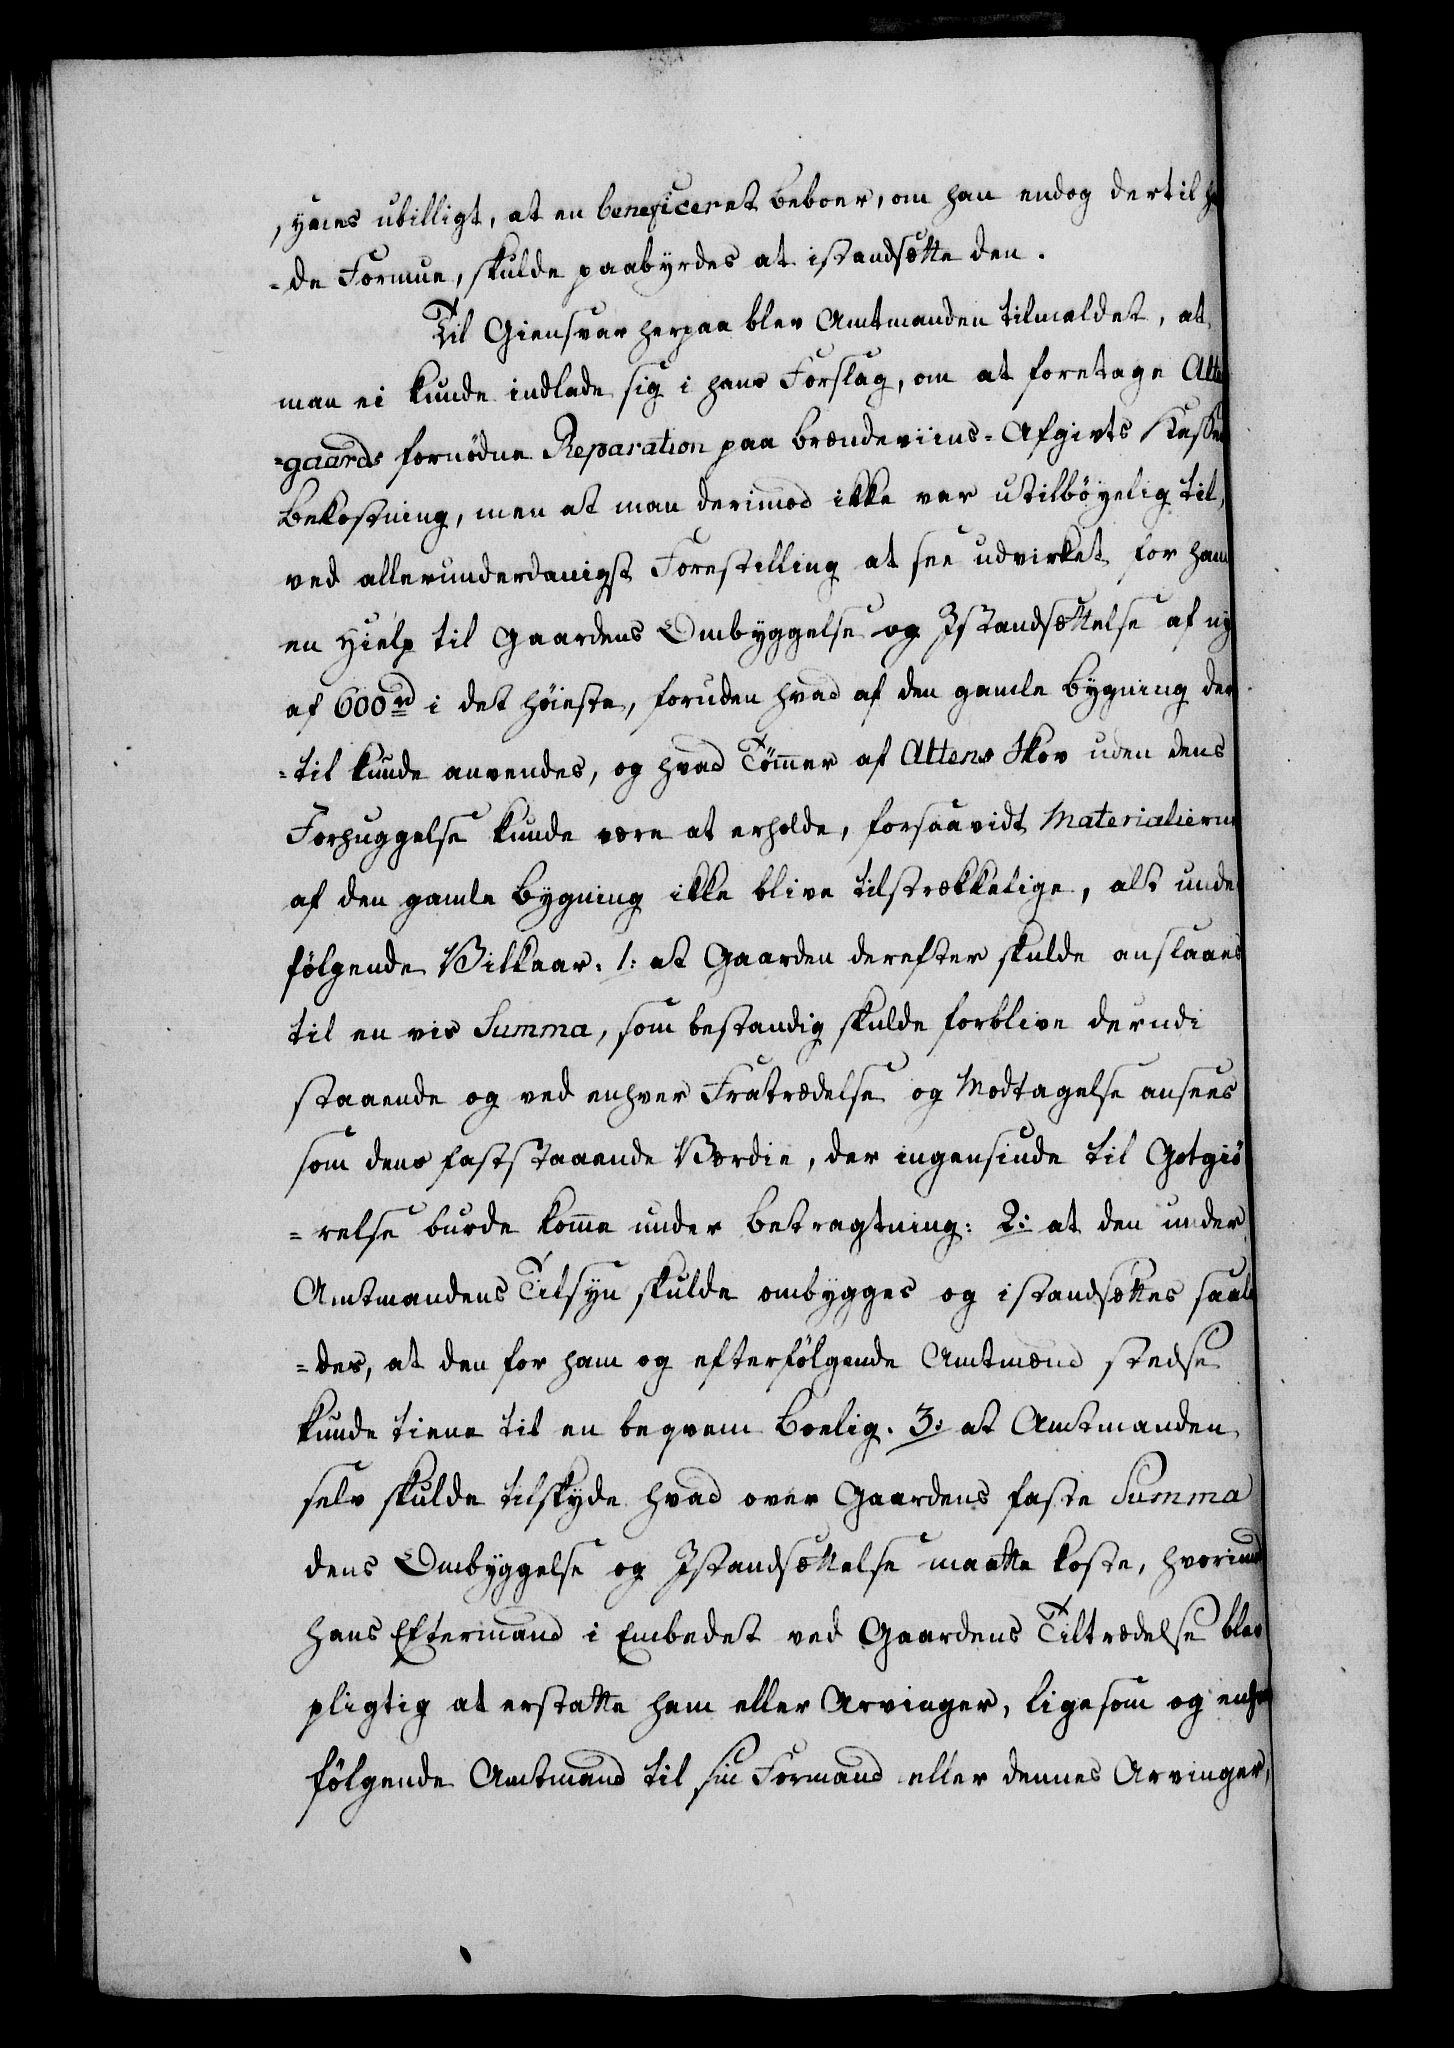 synes ubilligt, at en beneficeret Beboer, om han endog dertil ha
-de Formue, skulde paabyrdes at istandsætte den.
Til Giensvar herpaa blev Amtmanden tilmeldet, at
man ei kunde indlade sig i hans Forslag, om at foretage Alte
-gaards fornødne Reparation paa Brændeviins-Afgivts Kassen
Bekostning, men at man derimod ikke var utilböyelig til,
ved allerunderdanigst Forestilling at see udvirket for ham
en Hielp til Gaardens Ombyggelse og Istandsættelse af ny
af 600 rd i det höieste, foruden hvad af den gamle Bygning der
-til kunde anvendes, og hvad Tömer af Altens Skov uden dens
Forhuggelse kunde være at erholde, forsaavidt Materialierne
af den gamle Bygning ikke blive tilstrækkelige, alt unde
fölgende Vilkaar. 1: at Gaarden derefter skulde anslaaes
til en vis Summa, som bestandig skulde forblive derudi
staaende og ved enhver Fratrædelse og Modtagelse ansees
som dens faststaaende Værdie, der ingensinde til Gotgiö
-relse burde kome under Betragtning: 2: at den under
Amtmandens Tilsyn skulde ombygges og istandsættes saale
-des, at den for ham og efterfölgende Amtmænd stedse
kunde tiene til en beqvem Boelig. 3: at Amtmanden
selv skulde tilskyde hvad over Gaardens faste Summa
dens Ombyggelse og Istandsættelse maatte koste, hvorimod
hans Eftermand i Embedet ved Gaardens Tiltrædelse blev
pligtig at erstatte ham eller Arvinger, ligesom og enhver
fölgende Amtmand til sin Formand eller dennes Arvinger,